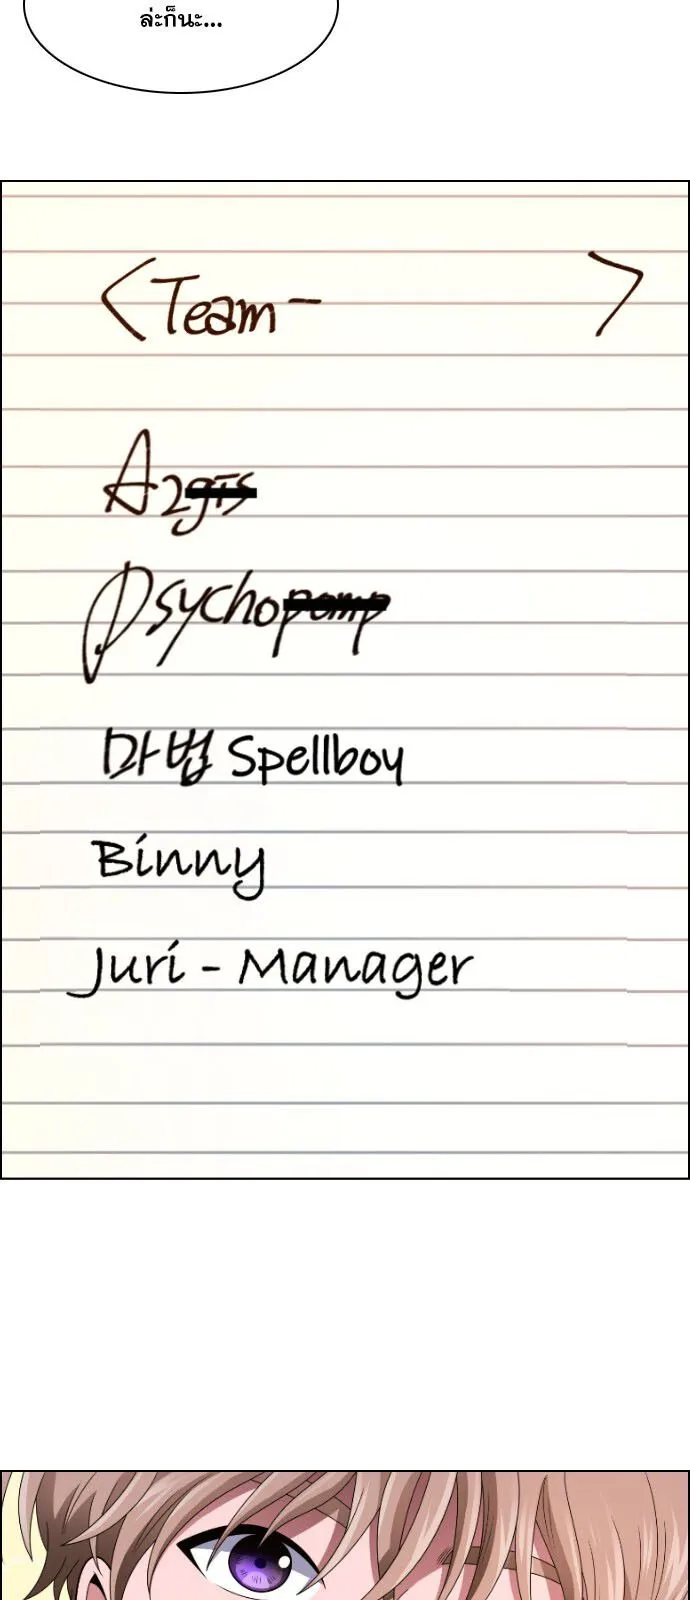 ล่ะก็นะ...
<Team- >
Azgis
Psychopomp
마법 Spellboy
Binny
Juri - Manager